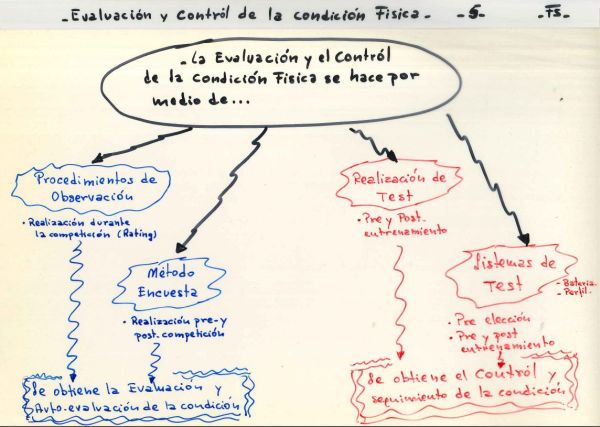 - Evaluación y Contról de la condición Física -  - 5 -  - FS. -
- La Evaluación y el Contról
de la condición Física se hace por
medio de...
Procedimientos de
Observación
• Realización durante
la competición (Rating)
Método
Encuesta
• Realización pre- y
post. competición
Se obtiene la Evaluación y
Auto-evaluación de la condición
Realización de
Test
• Pre y Post.
entrenamiento
Sistemas de
Test
- Bateria.
- Perfil.
• Pre elección
• Pre y post
entrenamiento
Se obtiene el Contról y
seguimiento de la condición